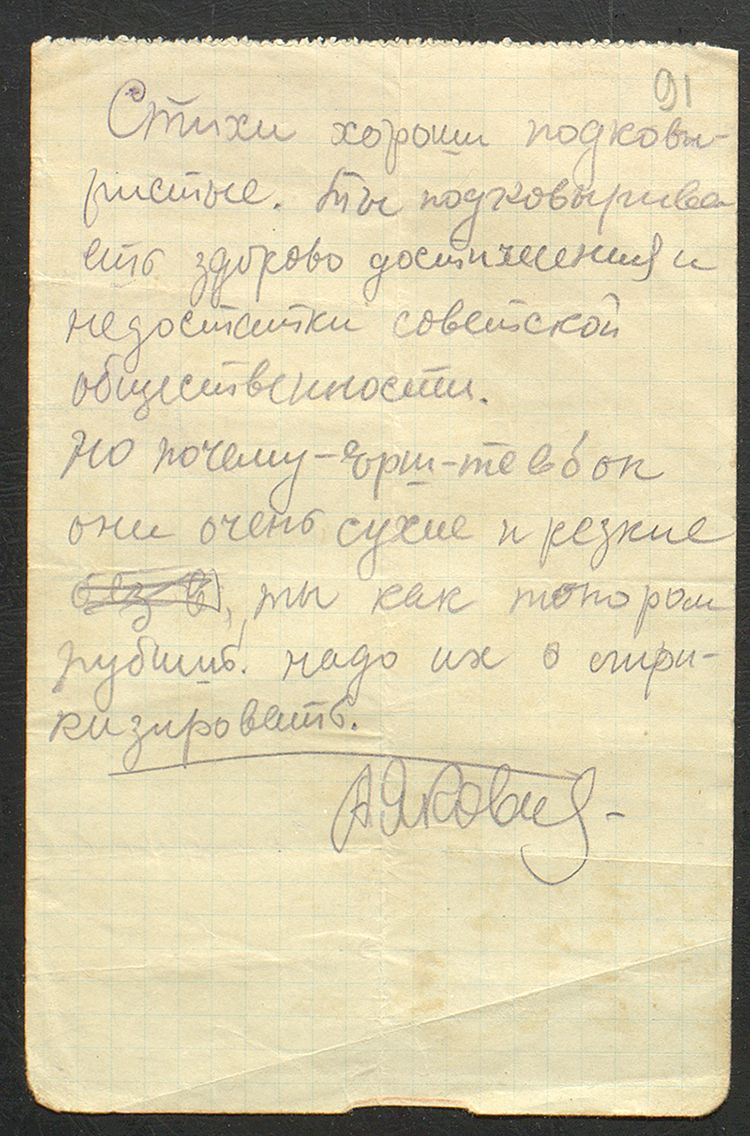 91
Стихи хороши подковы-
ристые. Ты подковырива
ешь здорово достижения и
недостатки советской
общественности.
Но почему-
они очень сухие и резкие
без в, ты как топором
рубишь. надо их олири-
кизировать.
А Яковлев